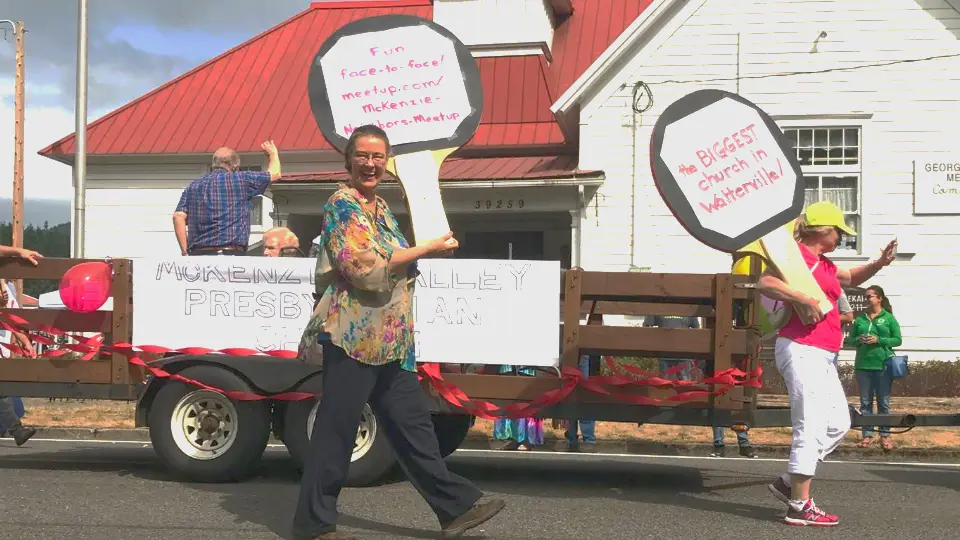 Fun
face-to-face!
meetup.com/
McKenzie-
Neighbors-Meetup
the BIGGEST
church in
Walterville!
39259
GEORG
ME
Cam
MCKENZ ALLEY
PRESBY IAN
CH
EKAI
211